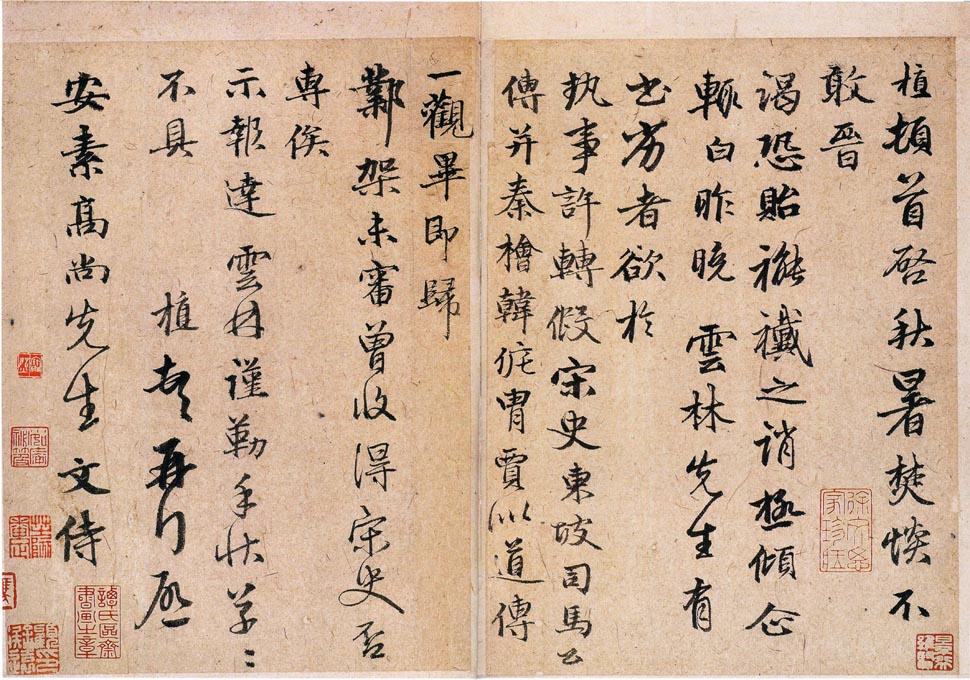 植頓首啓秋暑焚惔不
敢晉
謁恐貽褦襶之誚極傾企
輒白昨晚 雲林先生有
書劣者欲於
執事許轉假宋史東坡司馬公
傳并秦檜韓侂胄賈似道傳
一觀畢即歸
鄴架未審曾收得宋史否
專俟
示報達 雲林謹勒手狀草〻
不具 植頓首再拜啓
安素高尚先生 文侍
譚氏區齋書畫之章